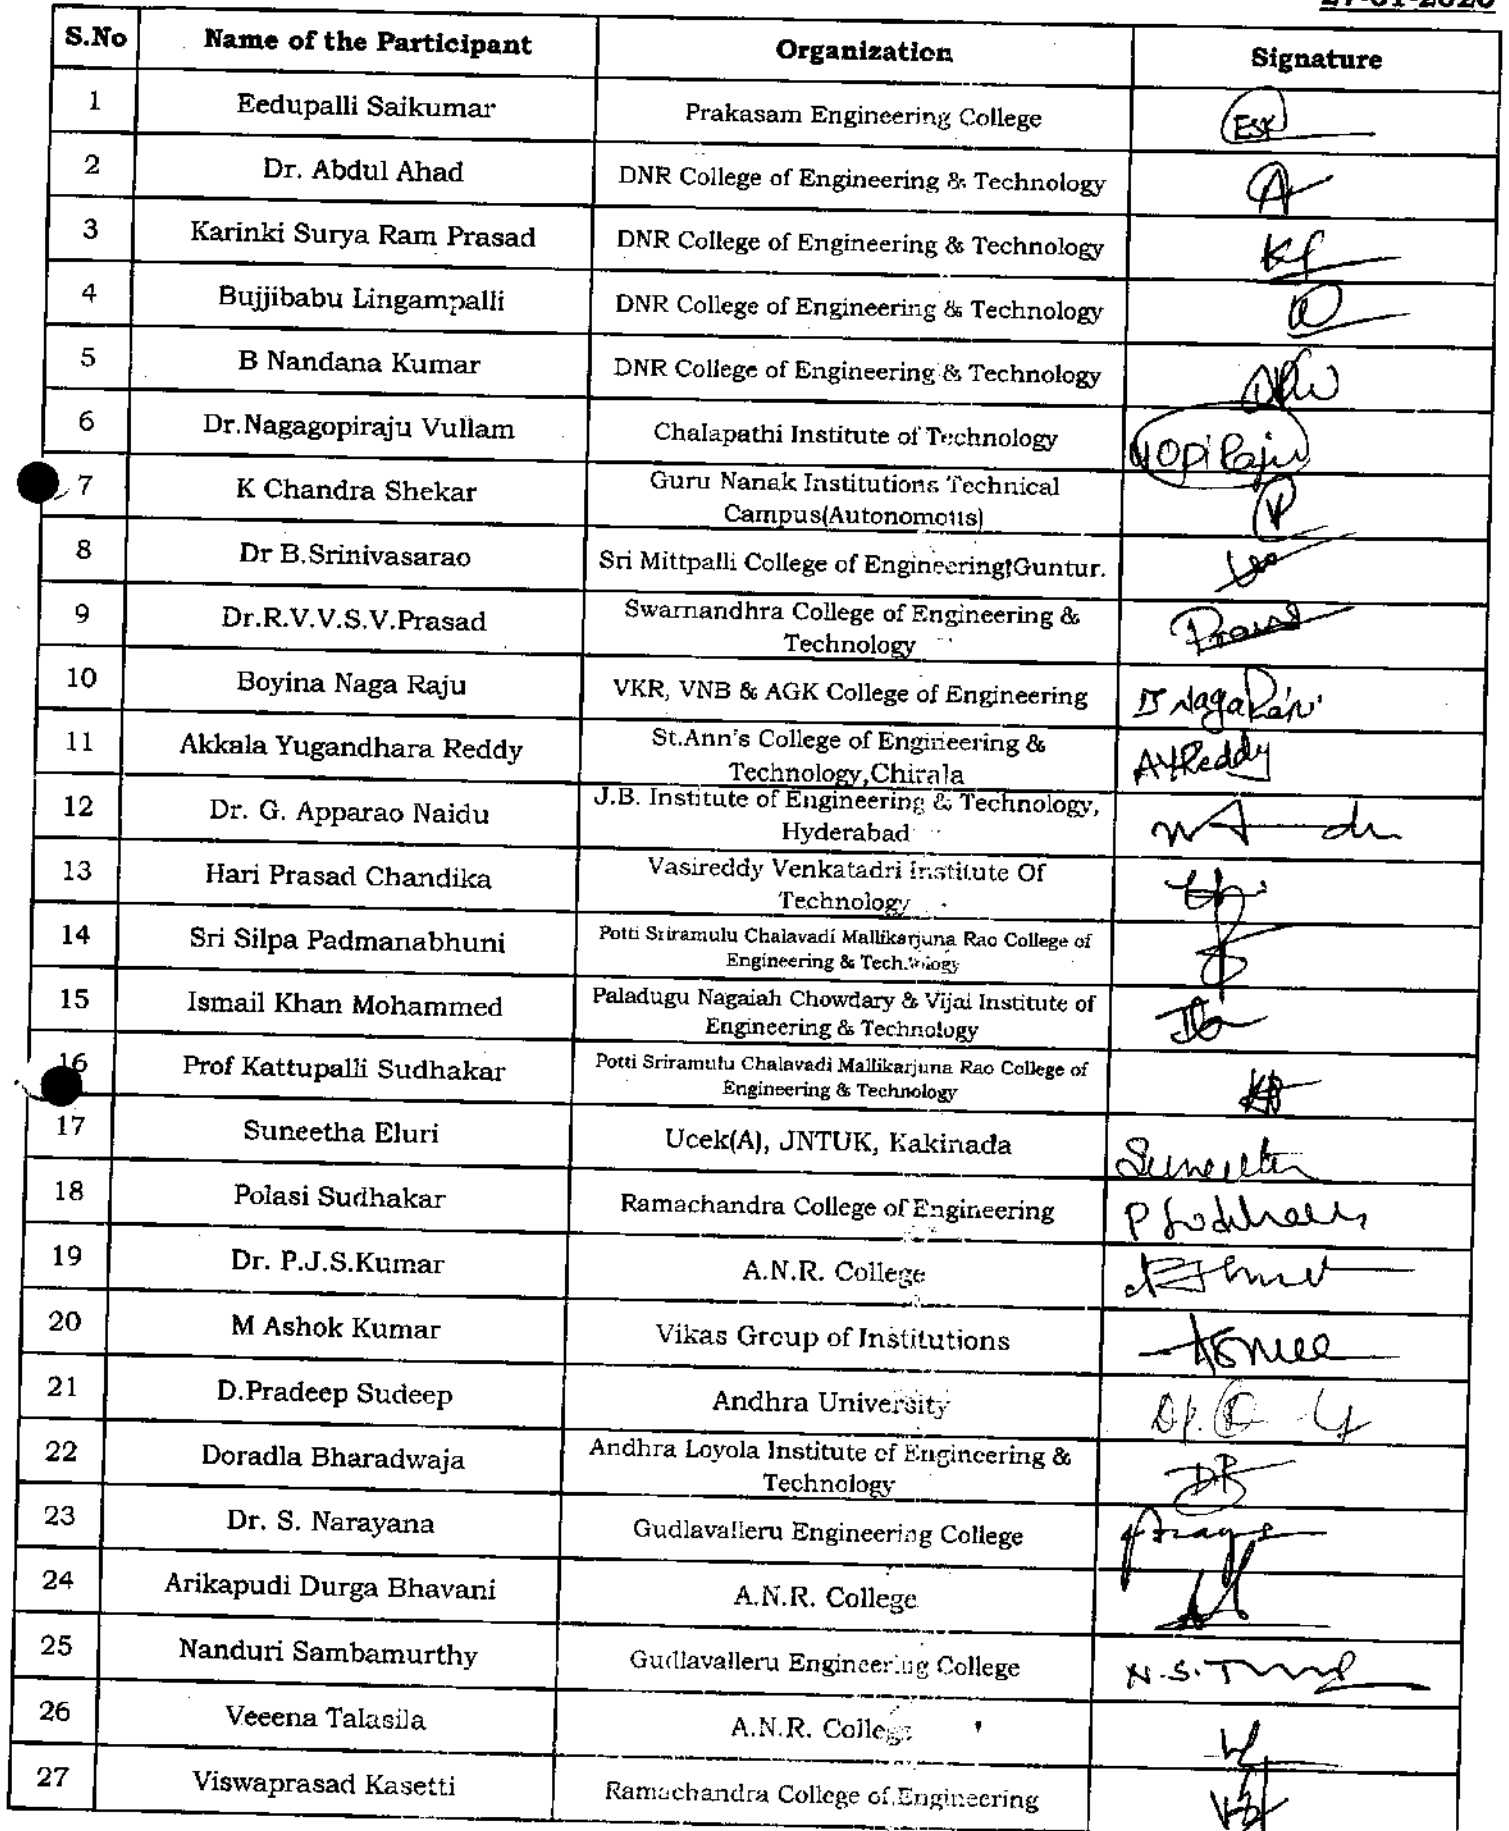 27-01-2020
S.No Name of the Participant Organization Signature
1 Eedupalli Saikumar Prakasam Engineering College ESK
2 Dr. Abdul Ahad DNR College of Engineering & Technology
3 Karinki Surya Ram Prasad DNR College of Engineering & Technology
4 Bujjibabu Lingampalli DNR College of Engineering & Technology
5 B Nandana Kumar DNR College of Engineering & Technology
6 Dr.Nagagopiraju Vullam Chalapathi Institute of Technology
7 K Chandra Shekar Guru Nanak Institutions Technical
Campus(Autonomous)
8 Dr B.Srinivasarao Sri Mittpalli College of Engineering,Guntur.
9 Dr.R.V.V.S.V.Prasad Swarnandhra College of Engineering &
Technology
10 Boyina Naga Raju VKR, VNB & AGK College of Engineering B NagaRaju
11 Akkala Yugandhara Reddy St.Ann's College of Engineering &
Technology,Chirala AYReddy
12 Dr. G. Apparao Naidu J.B. Institute of Engineering & Technology,
Hyderabad
13 Hari Prasad Chandika Vasireddy Venkatadri Institute Of
Technology
14 Sri Silpa Padmanabhuni Potti Sriramulu Chalavadi Mallikarjuna Rao College of
Engineering & Technology
15 Ismail Khan Mohammed Paladugu Nagaiah Chowdary & Vijai Institute of
Engineering & Technology
16 Prof Kattupalli Sudhakar Potti Sriramulu Chalavadi Mallikarjuna Rao College of
Engineering & Technology
17 Suneetha Eluri Ucek(A), JNTUK, Kakinada Suneetha
18 Polasi Sudhakar Ramachandra College of Engineering P Sudhakar
19 Dr. P.J.S.Kumar A.N.R. College
20 M Ashok Kumar Vikas Group of Institutions
21 D.Pradeep Sudeep Andhra University
22 Doradla Bharadwaja Andhra Loyola Institute of Engineering &
Technology DB
23 Dr. S. Narayana Gudlavalleru Engineering College
24 Arikapudi Durga Bhavani A.N.R. College
25 Nanduri Sambamurthy Gudlavalleru Engineering College
26 Veeena Talasila A.N.R. College
27 Viswaprasad Kasetti Ramachandra College of Engineering